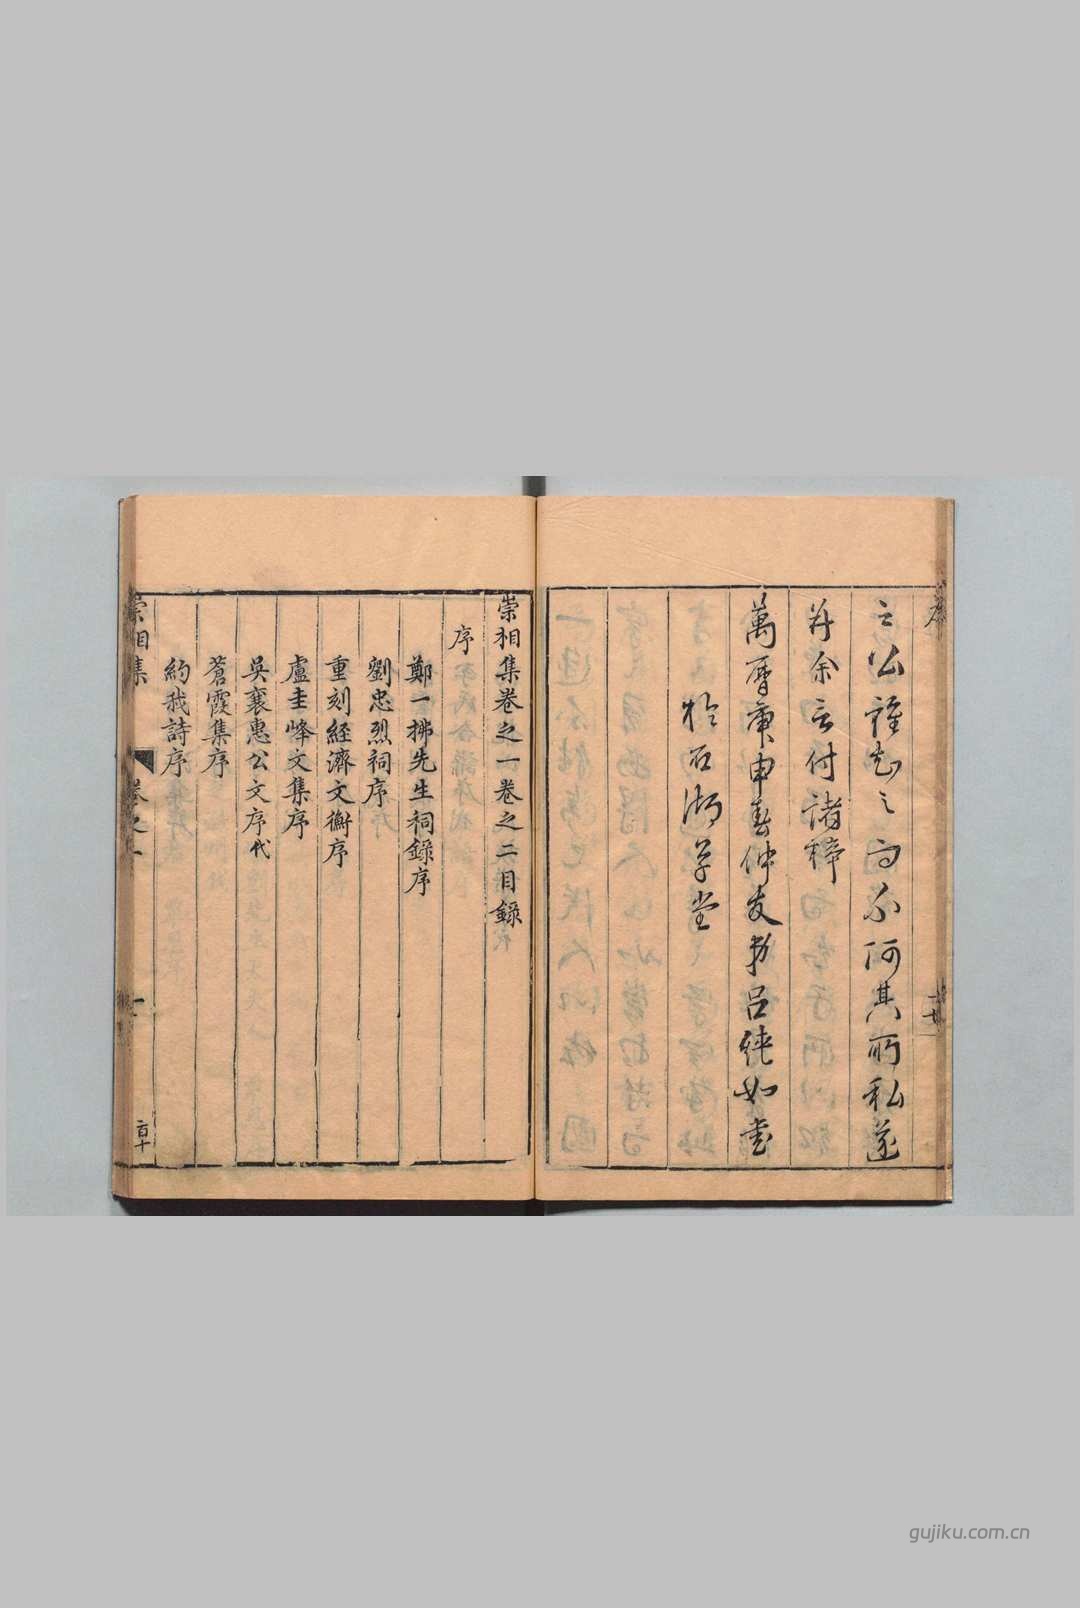 之公雖知之而不阿其所私遂
并余言付諸梓
萬曆庚申春仲友弟呂純如書
於石湖草堂
崇相集卷之一卷之二目錄
序
鄭一拂先生祠錄序
劉忠烈祠序
重刻經濟文衡序
盧圭峰文集序
吳襄惠公文序代
蒼霞集序
約我詩序
崇相集
卷之一
一
百十
gujiku.com.cn